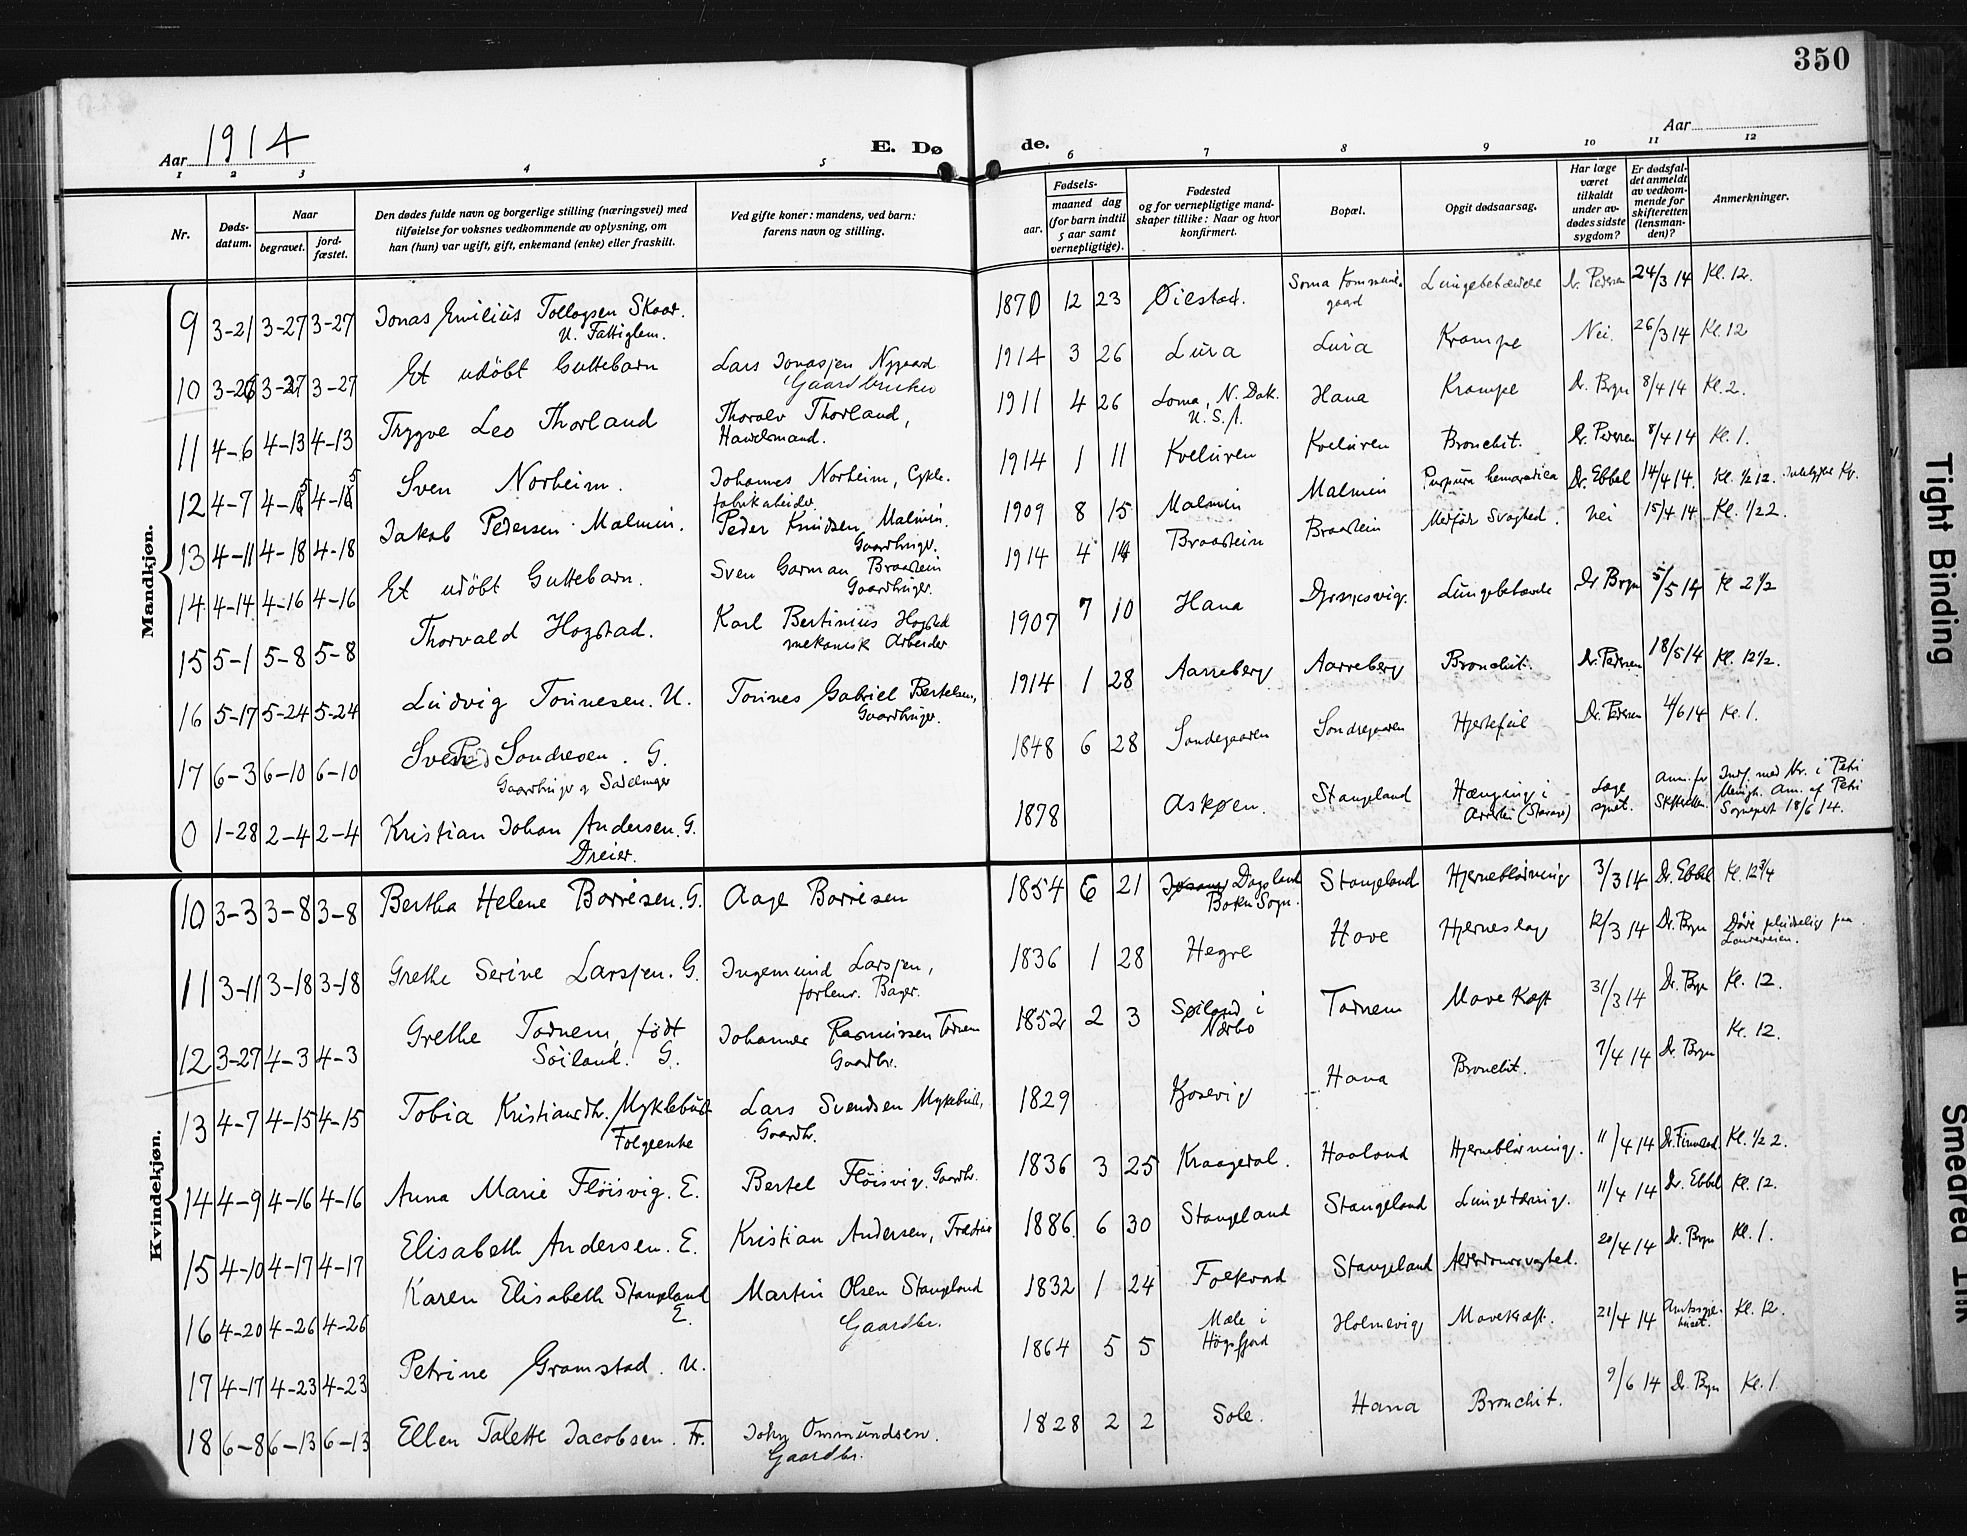 350
Aar 1914
E. Dø
de.
Aar
1 2 3 4 5 6 7 8 9 10 11 12
Nr.
Døds-
datum.
Naar
begravet.
jord-
fæstet.
Den dødes fulde navn og borgerlige stilling (næringsvei) med
tilføielse for voksnes vedkommende av oplysning, om
han (hun) var ugift, gift, enkemand (enke) eller fraskilt.
Ved gifte koner: mandens, ved barn:
farens navn og stilling.
Fødsels-
aar.
maaned dag
(for barn indtil
5 aar samt
vernepligtige).
Fødested
og for vernepligtige mand-
skaper tillike: Naar og hvor
konfirmert.
Bopæl.
Opgit dødsaarsag.
Har læge
været
tilkaldt
under av-
dødes sidste
sygdom?
Er dødsfal-
det anmeldt
av vedkom-
mende for
skifteretten
(lensman-
den)?
Anmerkninger.
Mandkjøn.
9 3-21 3-27 3-27 Jonas Emilius Tollagsen Skaar. 1870 12 23 Øiestad. Soma Kommune- Lungebetændelse Dr. Pedersen 24/3 14 Kl. 12.
U. Fattiglem. gaard
10 3-26 3-27 3-27 Et udöbt Guttebarn Lars Jonassen Nygaard 1914 3 26 Lura Lura Krampe Nei. 26/3 14 Kl. 12
Gaardbruker
11 4-6 4-13 4-13 Trygve Leo Thorland Thoralv Thorland, 1911 4 26 Loma, N. Dak. Hana Krampe Dr. Bryn 8/4 14 Kl. 2.
Handelsmand. U.S.A.
12 4-7 4-15 4-15 Sven Norheim. Johannes Norheim, Cykle- 1914 1 11 Kveluren Kveluren Bronchit. Dr. Pedersen 8/4 14 Kl. 1.
fabrikarbeider
13 4-11 4-18 4-18 Jakob Pedersen Malmin. Peder Knudsen Malmin. 1909 8 15 Malmin Malmin Purpura Dr. Ebbel 14/4 14. Kl. 1/2 12.
Gaardbruger.
14 4-14 4-16 4-16 Et udöbt Guttebarn. Sven Garman Braastein 1914 4 14 Braastein Braastein Medfödt Svaghed. nei 15/4 14 Kl. 1/2 2.
Gaardbruger.
15 5-1 5-8 5-8 Thorvald Hogstad. Karl Bertinius Hogstad 1907 7 10 Hana Dyrnesvig. Lungebetændelse Dr Bryn 5/5 14 Kl 2 1/2
mekanisk Arbeider
16 5-17 5-24 5-24 Ludvig Tönnesen. U. Tönnes Gabriel Bertelsen, 1914 1 28 Aarreberg Aarreberg Bronchit. Dr. Pedersen 18/5 14 Kl. 12 1/2.
Gaardbruger.
17 6-3 6-10 6-10 Svend Sondresen. G. 1848 6 28 Sondregaarden Sondregaarden Hjertefeil Dr. Pedersen 4/6 14 Kl. 1.
Gaardbruger og Sadelmager
0 1-28 2-4 2-4 Kristian Johan Andersen. G. 1878 Askøen. Stangeland Hængning i Læge Anm. for Indf. med Nr. i Petri
Dreier. Arresten (Stavang) synet. Skifteretten Menigh. Am. af Petri
Sognepræst 18/6 14.
Kvindekjøn.
10 3-3 3-8 3-8 Bertha Helene Borresen. G. Aage Borresen 1854 6 21 Dagsland Stangeland Hjerneblödning 3/3 14 Dr. Ebbel Kl. 12 3/4
Bokn Sogn.
11 3-11 3-18 3-18 Grethe Serine Larssen. G. Ingemund Larssen, 1836 1 28 Hegre Hove Hjerneslag 12/3 14 Dr. Bryn Döde pludselig paa
forhenv. Bager. Landeveien.
12 3-27 4-3 4-3 Grethe Tadnem, født Johannes Rasmussen Tadnem 1852 2 3 Søiland i Tadnem Mave Kræft 31/3 14 Dr. Bryn Kl. 12.
Söiland. G. Gaardbr. Nærbo
13 4-7 4-15 4-15 Tobia Kristiansdtr. Myklebust Lars Svendsen Myklebust, 1829 Kosevig Hana Bronchit. 7/4 14 Dr. Bryn Kl. 12.
Folgeenke Gaardbr.
14 4-9 4-16 4-16 Anna Marie Flöisvig. E. Bertel Flöisvig. Gaardbr. 1836 3 25 Kraagedal. Haaland Hjerneblödning. 11/4 14 Dr. Finnesand Kl. 1/2 2.
15 4-10 4-17 4-17 Elisabeth Andersen. E. Kristian Andersen, 1886. 6 30 Stangeland Stangeland Lungetæring. 11/4 14 Dr. Ebbel Kl. 12.
16 4-20 4-26 4-26 Karen Elisabeth Stangeland Martin Olsen Stangeland 1832 1 24 Folkvord Stangeland Alderdomssvaghed. 20/4 14 Dr. Bryn Kl. 1.
E. Gaardbr.
17 4-17 4-23 4-23 Petrine Gramstad. U. 1864 5 5 Mæle i Holmevig Mavekræft. 21/4 14 Amtssyge- Kl. 12.
Högsfjord huset.
18 6-8 6-13 6-13 Ellen Talette Jacobsen. Fr. John Ommundsen. 1828 2 2 Sole. Hana Bronchit. 9/6 14 Dr. Bryn Kl. 1
Gaardbr.
Tight Binding
Smeared Ink